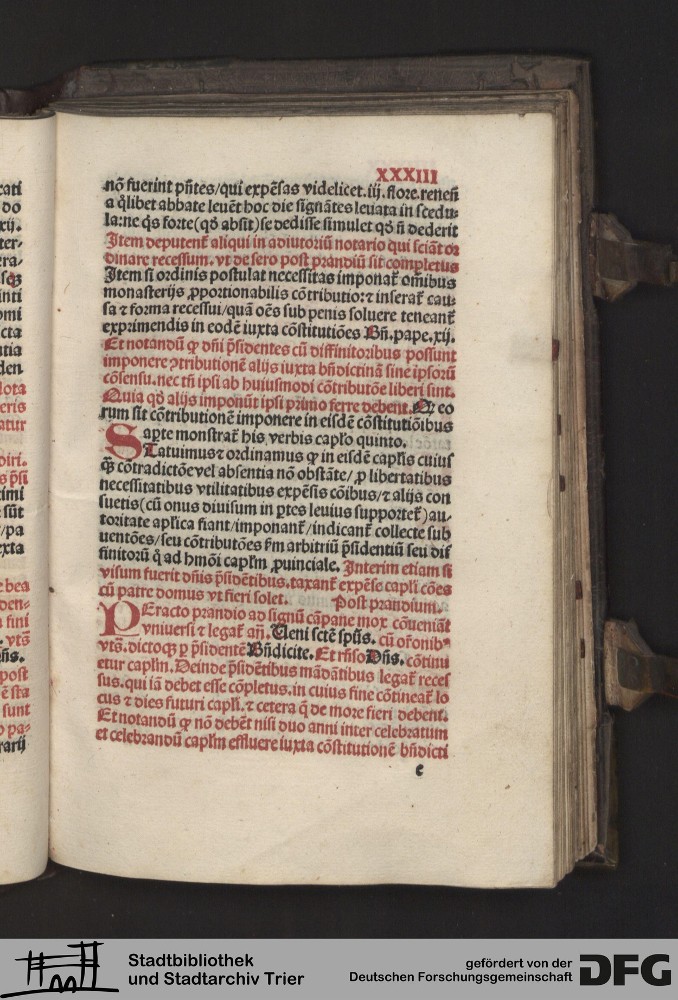 XXXIII
nō fuerint pn̄tes/qui expēsas videlicet.iij.flore.reneñ
a q̄libet abbate leuēt hoc die signātes leuata in scedu-
la:ne q̄s forte(qđ absit)se dedisse simulet qđ nō dederit
Item deputent̄ aliqui in adiutoriū notario qui sciāt or
dinare recessum.vt de sero post prandiū sit completus
Item si ordinis postulat necessitas imponat̄ om̄ibus
monasterijs ꝓportionabilis cōtributio:⁊ inserat̄ cau-
sa ⁊ forma recessui/quā oēs sub penis soluere teneant̄
exprimendis in eodē iuxta cōstitutiōes Bñ.pape.xij.
Et notandū ꝙ dn̄i p̄sidentes cū diffinitoribus possunt
imponere ↄtributionē alijs iuxta bn̄dictinā sine ipsorū
cōsensu.nec tn̄ ipsi ab huiusmodi cōtributōe liberi sint.
Quia qđ alijs imponūt ipsi primo ferre debent.Qꝛ eo
rum sit cōtributionē imponere in eisdē cōstitutiōibus
Sapte monstrat̄ his verbis cap̄lo quinto.
STatuimus ⁊ ordinamus ꝙ in eisdē cap̄lis cuius
ꝙ̄ cōtradictōe vel absentia nō obstāte/ꝓ libertatibus
necessitatibus vtilitatibus expēsis cōibus/⁊ alijs con
suetis(cū onus diuisum in ꝑtes leuius supportet̄)au-
toritate aplica fiant/imponant̄/indicant̄ collecte sub
uentōes/seu cōtributōes ẜm arbitriū p̄sidentiū seu dif
finitorū q̄ ad hm̄oi cap̄lm ꝓuinciale.Interim etiam si
visum fuerit dn̄is p̄sidētibus.taxant̄ expēse capl̄i cōes
cū patre domus vt fieri solet. Post prandium.
PEracto prandio ad signū cāpane mox cōueniāt
vniuersi ⁊ legat̄ añ.Veni sctē sp̄us.cū or̄onibꝰ
vts̄.dictoqꝫ ꝑ p̄sidentē Bn̄dicite.Et rn̄so Dn̄s.cōtinu
etur cap̄lm.Deinde p̄sidētibus mādātibus legat̄ reces
sus.qui iā debet esse cōpletus.in cuius fine cōtineat̄ lo
cus ⁊ dies futuri cap̄li.⁊ cetera q̄ de more fieri debent.
Et notandū ꝙ nō debēt nisi duo anni inter celebratum
et celebrandū cap̄lm effluere iuxta cōstitutionē bn̄dicti
e
Stadtbibliothek
und Stadtarchiv Trier
gefördert von der
Deutschen Forschungsgemeinschaft
DFG